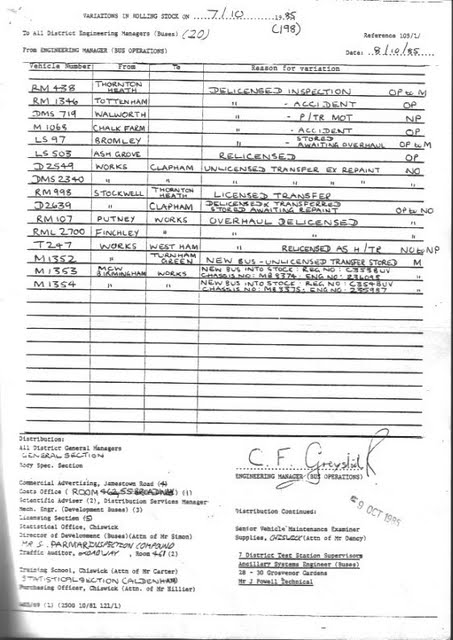 VARIATIONS IN ROLLING STOCK ON 7/10 1985
To All District Engineering Managers (Buses) (20) (198)
Reference 109/1/
From ENGINEERING MANAGER (BUS OPERATIONS) Date: 8/10/85
Vehicle Number From To Reason for variation
RM 438 THORNTON HEATH DELICENSED INSPECTION OP to M
RM 1346 TOTTENHAM " - ACCIDENT OP
DMS 719 WALWORTH " - P/TR MOT NP
M 1068 CHALK FARM " - ACCIDENT OP
LS 97 BROMLEY " STORED AWAITING OVERHAUL OP to M
LS 503 ASH GROVE RELICENSED OP
D 2549 WORKS CLAPHAM UNLICENSED TRANSFER EX REPAINT NO
DMS 2340 " " " " " "
RM 998 STOCKWELL THORNTON HEATH LICENSED TRANSFER
D2639 " CLAPHAM DELICENSED & TRANSFERRED STORED AWAITING REPAINT OP to NO
RM 107 PUTNEY WORKS OVERHAUL DELICENSED "
RML 2700 FINCHLEY " " " "
T 247 WORKS WEST HAM RELICENSED AS H/TP NO to NP
M 1352 " TURNHAM GREEN NEW BUS - UNLICENSED TRANSFER STORED M
M 1353 MCW BIRMINGHAM WORKS NEW BUS INTO STOCK : REG NO : C353BUV "
CHASSIS NO : MB8374 : ENG NO :
M 1354 " " NEW BUS INTO STOCK : REG NO : C354BUV "
CHASSIS NO : MB8375 : ENG NO :
Distribution:
All District General Managers
GENERAL SECTION
Body Spec. Section
C. F.
ENGINEERING MANAGER (BUS OPERATIONS)
Commercial Advertising, Jamestown Road (4)
Costs Office (ROOM 462, 55 BROADWAY) (1)
Scientific Adviser (2), Distribution Services Manager
Mech. Engr. (Development Buses) (3)
Licensing Section (5)
Statistical Office, Chiswick
Director of Development (Buses)(Attn of Mr Simon)
MR S. PARMAR INSPECTION COMPOUND
Traffic Auditor, BROADWAY, Room 461 (2)
Training School, Chiswick (Attn of Mr Carter)
STATISTICAL SECTION (ALDENHAM)
Purchasing Officer, Chiswick (Attn of Mr Hillier)
9 OCT 1985
Distribution Continued:
Senior Vehicle Maintenance Examiner
Supplies, CHISWICK (Attn of Mr Dency)
7 District Test Station Supervisors
Ancillary Systems Engineer (Buses)
28 - 30 Grosvenor Gardens
Mr J Powell Technical
(1) (2500 10/81 121/1)